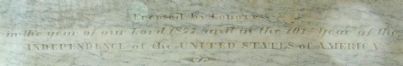 Erected by Congress
in the year of our Lord 1877 and in the 101st year of the
INDEPENDENCE of the UNITED STATES of AMERICA